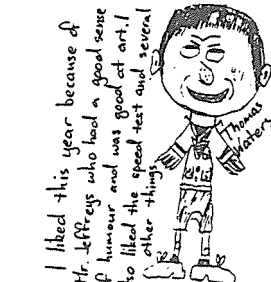 I liked this year because of
Mr. Jeffreys who had a good sense
of humour and was good at art. I
so liked the speed test and several
other things
Thomas
Waters